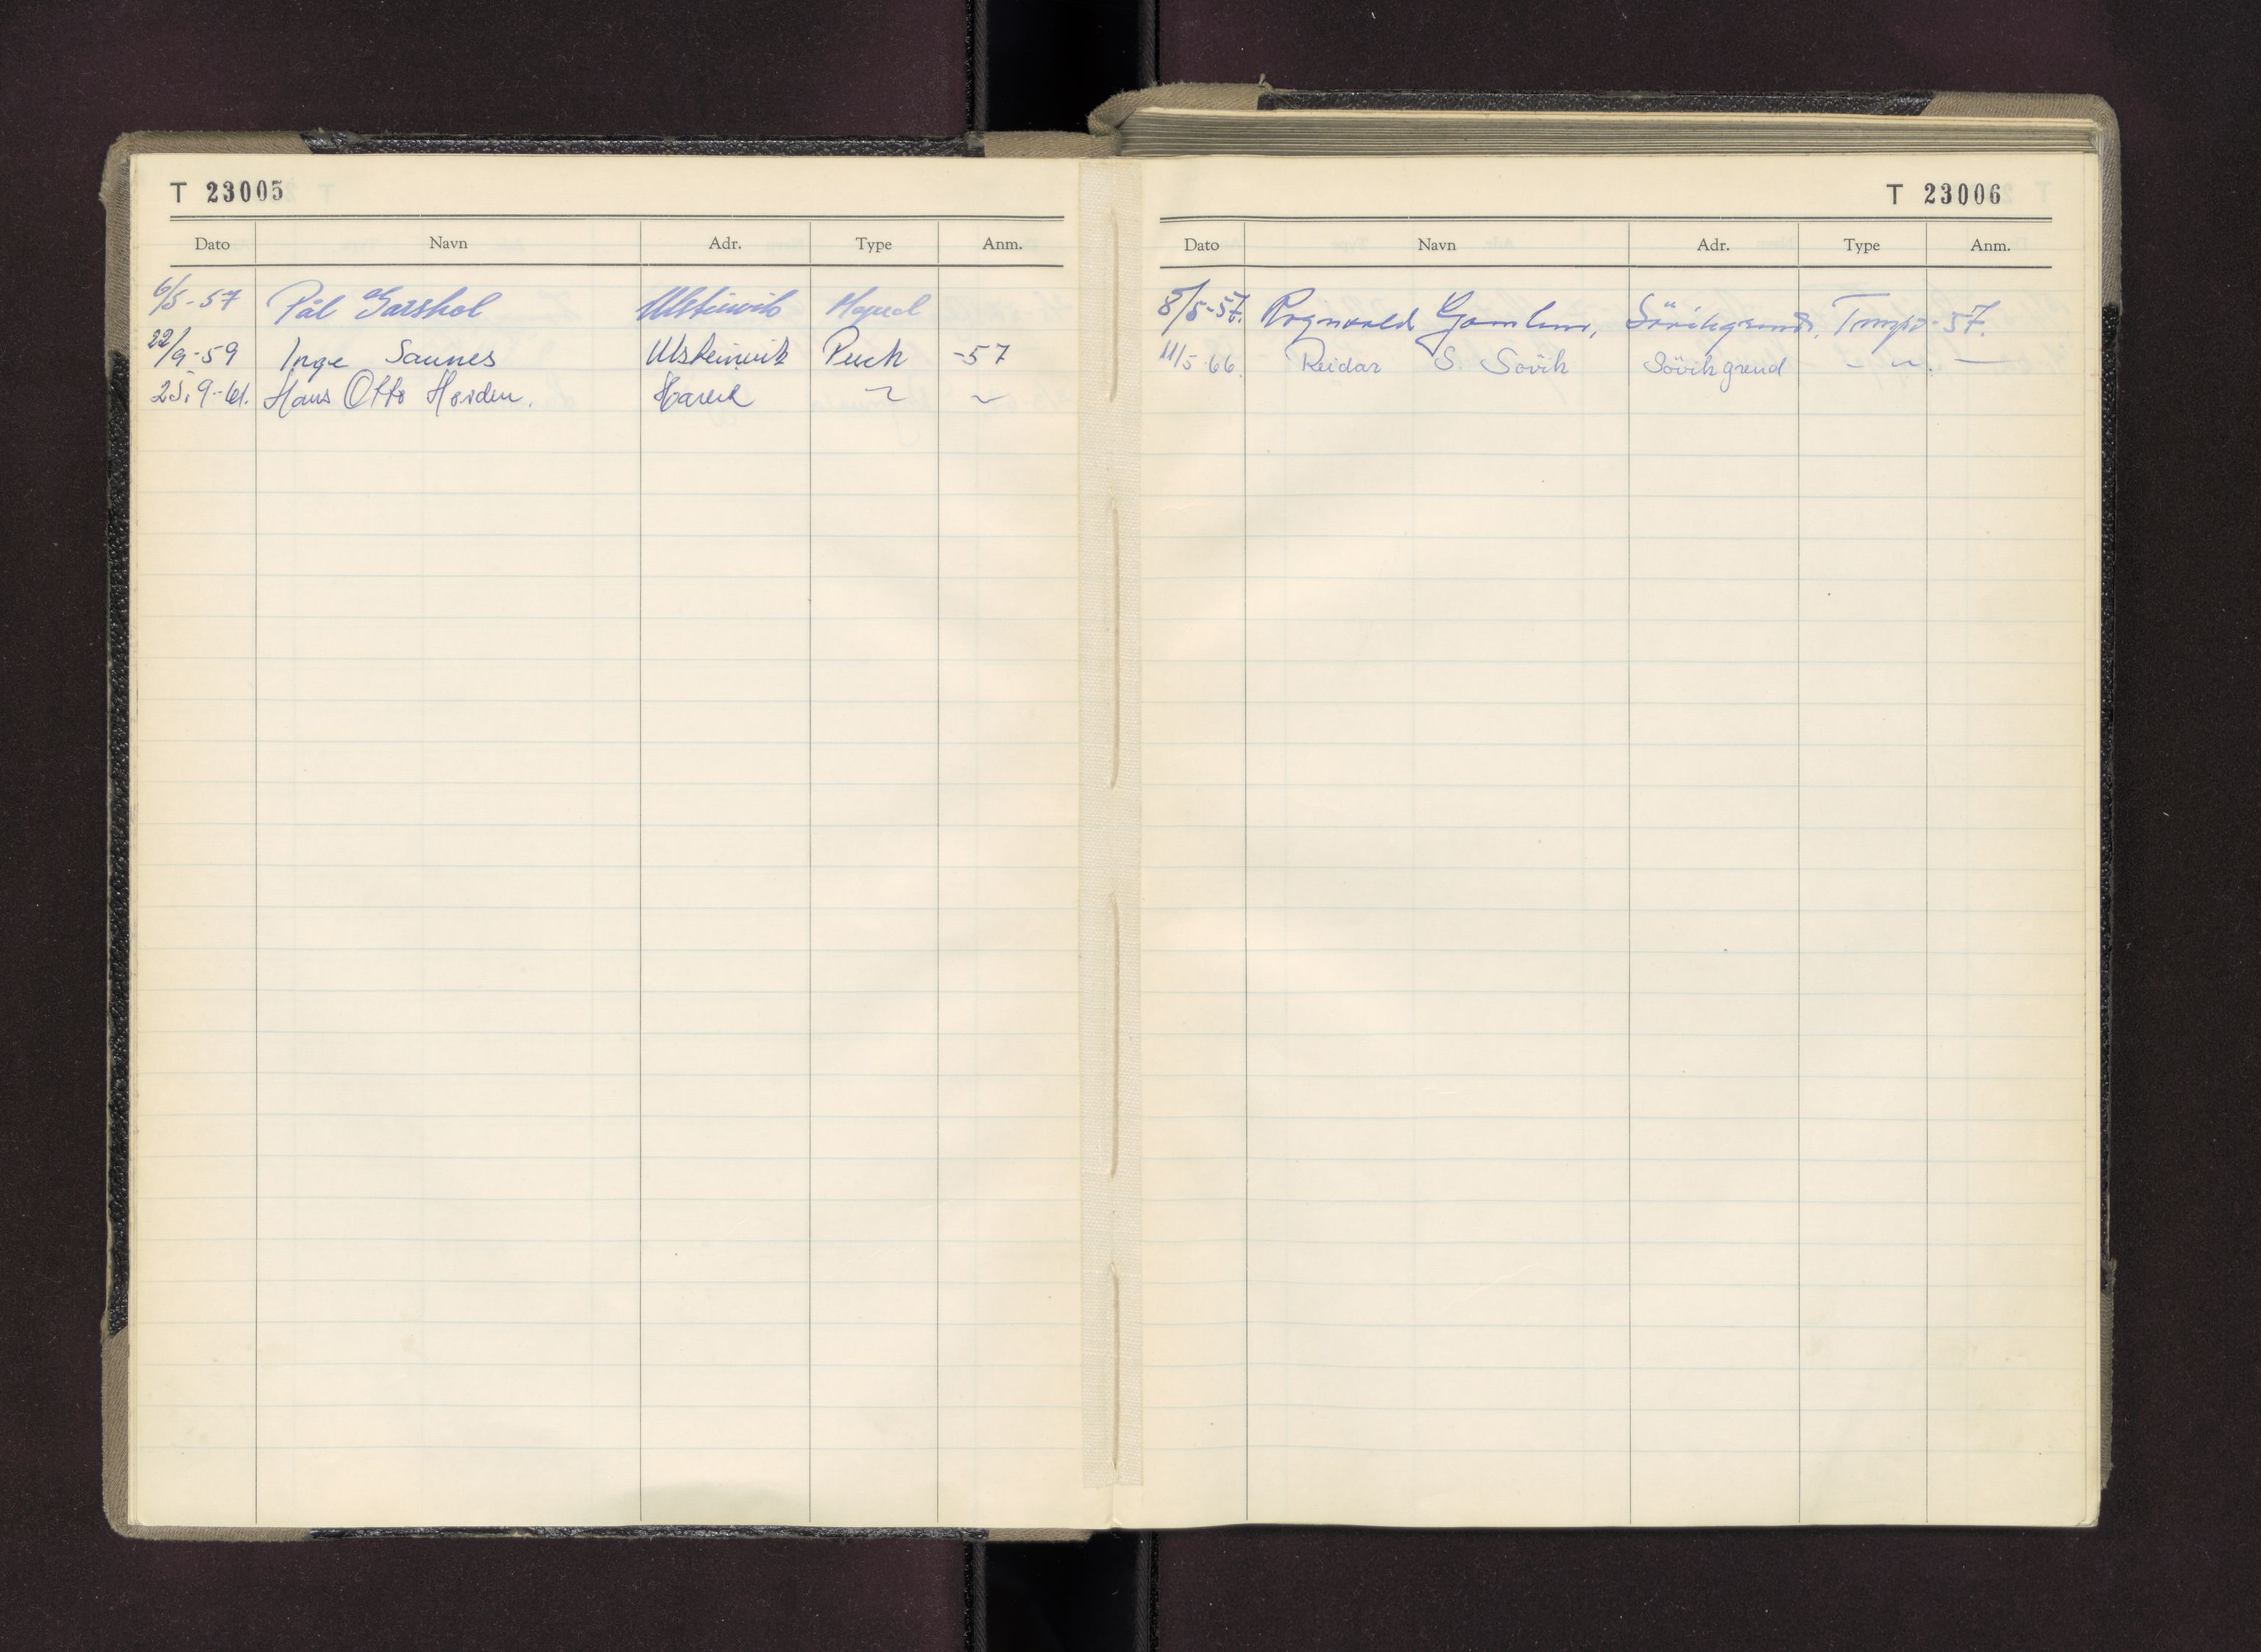 T 23005
Dato Navn Adr. Type Anm.
6/5-57 Pål Garshol Ulsteinvik
22/9-59 Inge Saunes Ulsteinvik Puch -57
25.9.-61. Hans Otto Hareid ~ ~
T 23006
Dato Navn Adr. Type Anm.
8/5-57. Ragnvald Sövikgrend. Tempo -57.
11/5-66. Reidar S. Sövik Sövikgrend -"-. —